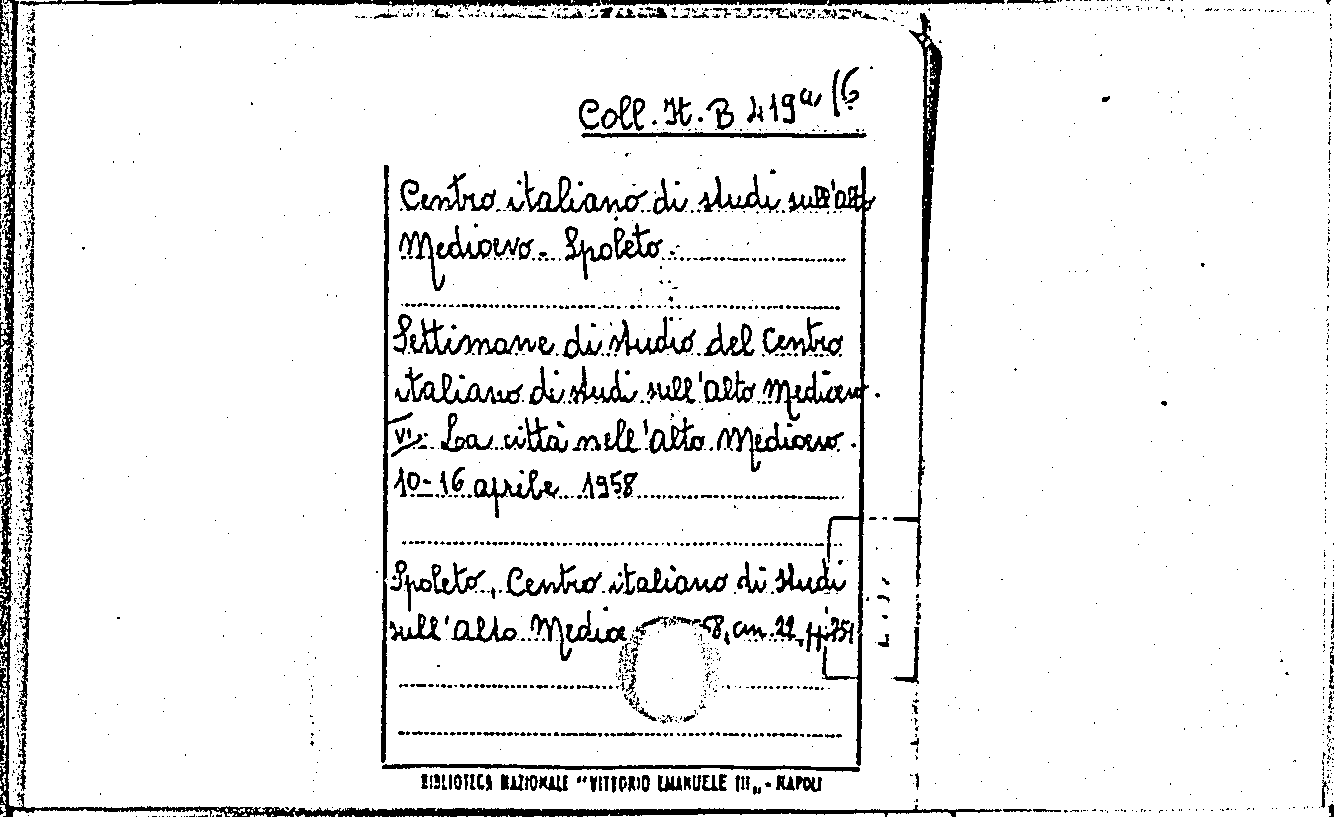 Coll. It. B 419ª/6
Centro italiano di studi sull'alto
Medioevo - Spoleto.
Settimane di studio del Centro
italiano di studi sull'alto Medioevo.
VI. La città nell'alto Medioevo.
10-16 aprile 1958
Spoleto, Centro italiano di studi
sull'alto Medioe 58, cm. 22, pp.
BIBLIOTECA NAZIONALE "VITTORIO EMANUELE III„ - NAPOLI